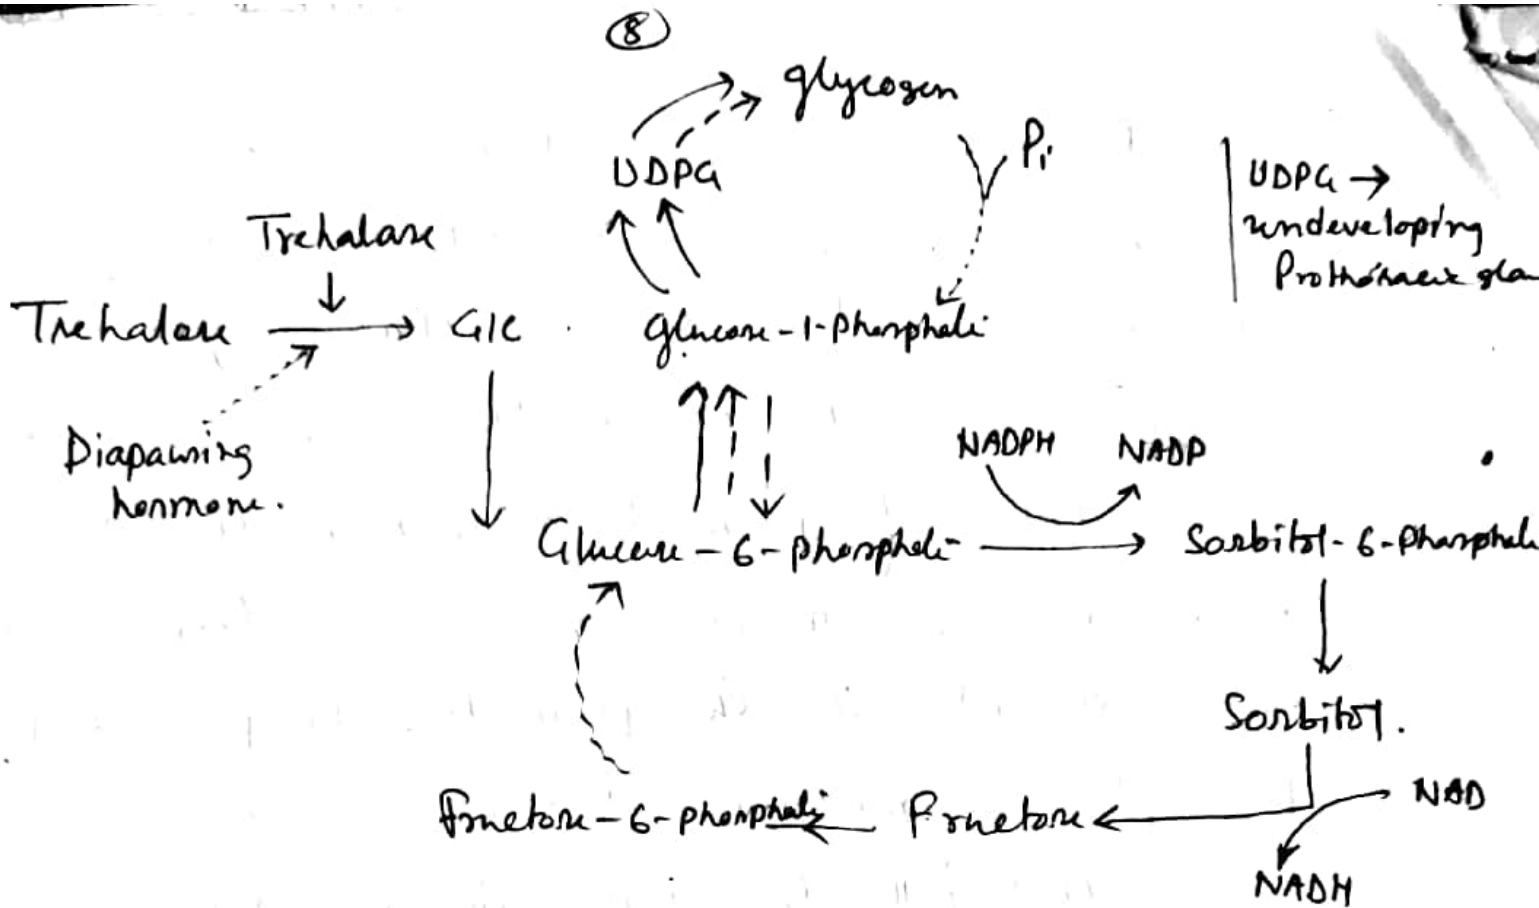 8
glycogen
Pi
UDPG
UDPG →
undeveloping
Prothoracic glan
Trehalase
Trehalose → Glc
Glucose-1-phosphate
Diapausing
hormone.
NADPH
NADP
Glucose-6-phosphate → Sorbitol-6-Phosphate
Sorbitol.
NAD
Fructose-6-phosphate ← Fructose ←
NADH